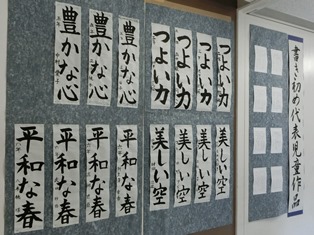 書き初め代表児童作品
つよい力
つよい力
つよい力
つよい力
豊かな心
豊かな心
豊かな心
美しい空
美しい空
美しい空
美しい空
平和な春
平和な春
平和な春